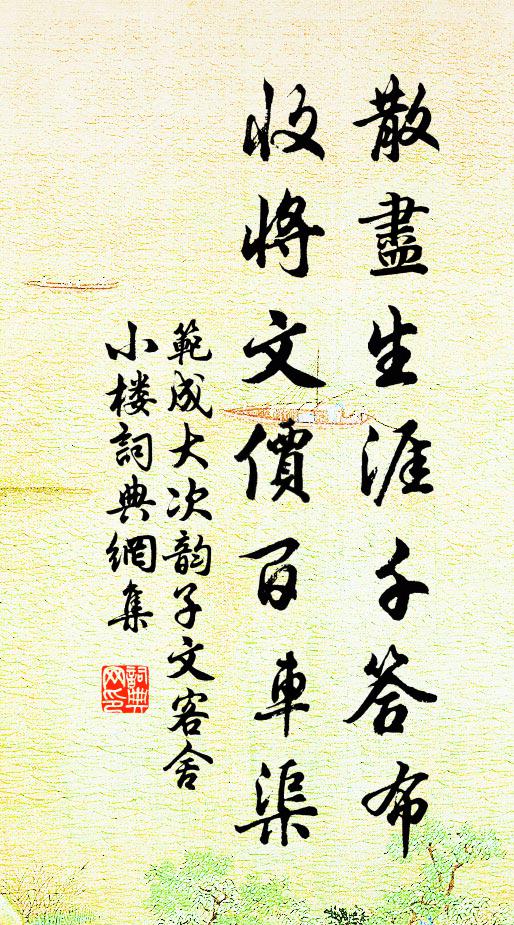 散盡生涯千答布
收將文價百車渠
範成大次韵子文客舍
小楼詞典網集
詞典
网印